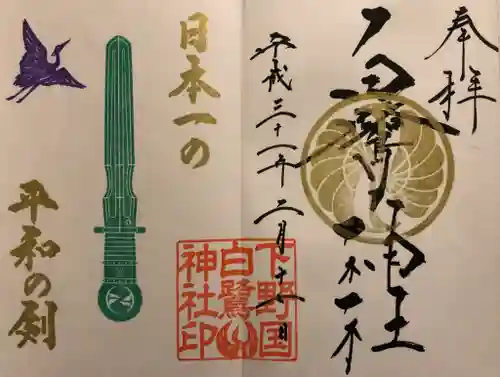 奉拝
白鷺神社
平成三十一年二月十一日
下野国
白鷺
神社印
日本一の
平和の剣